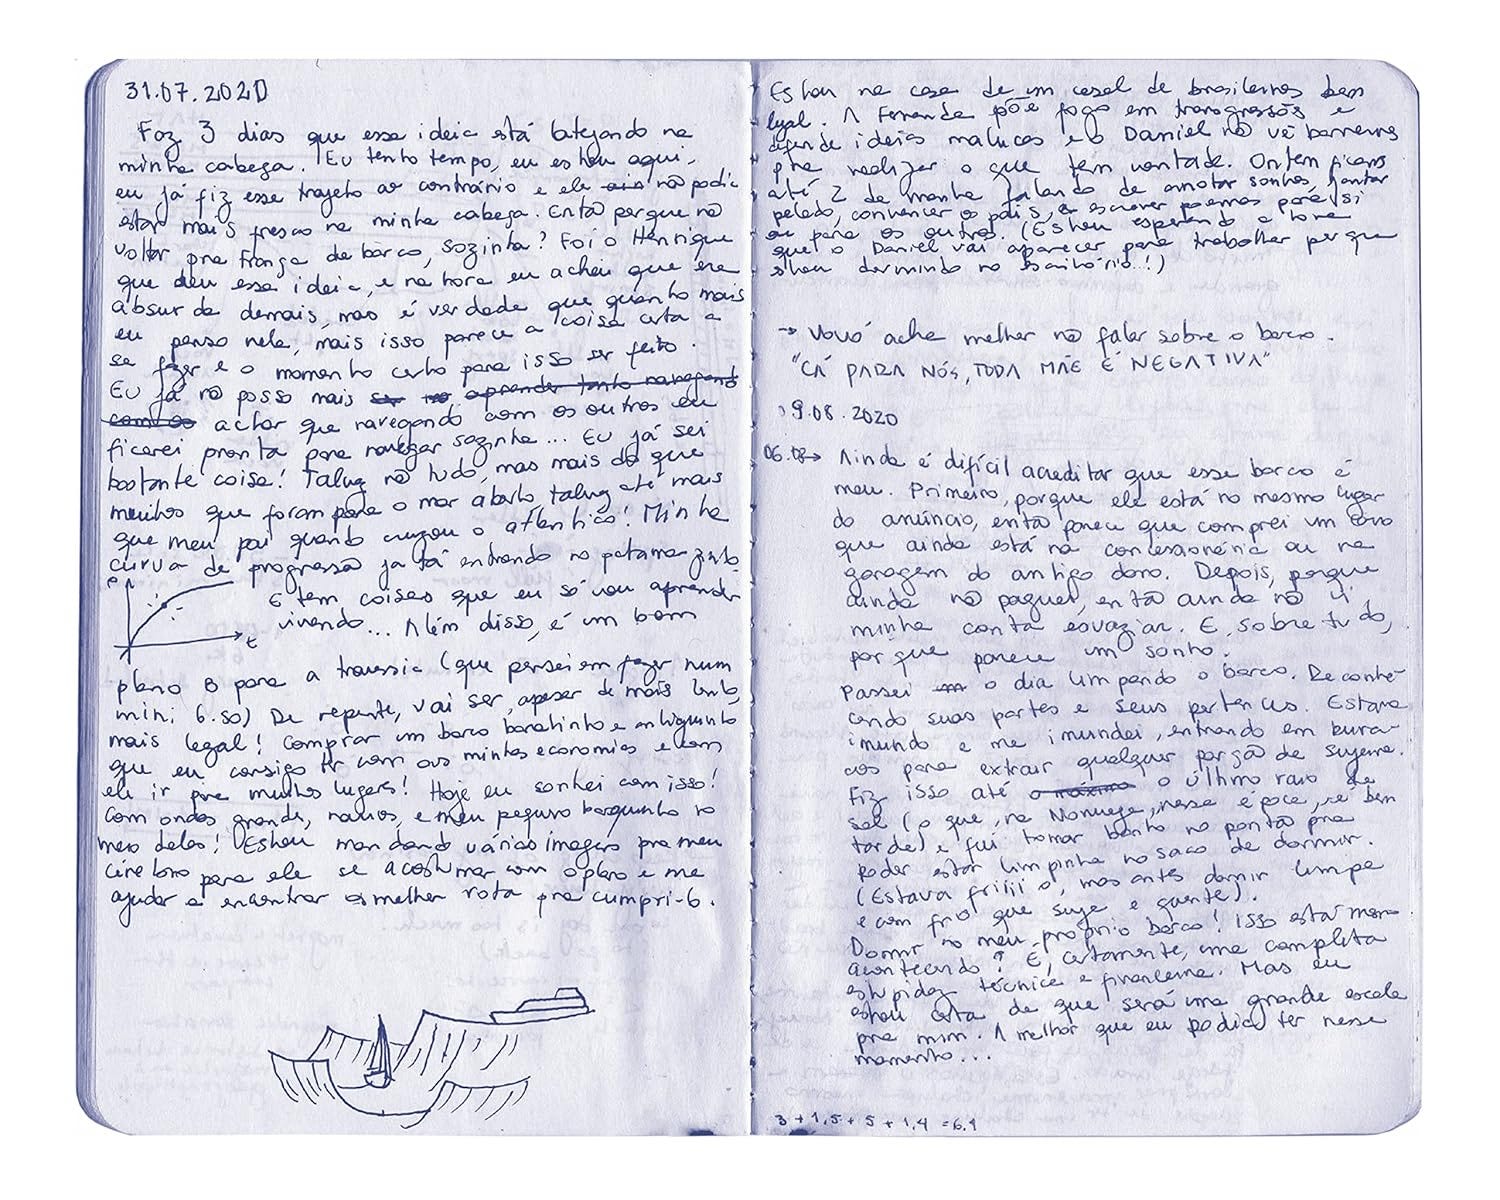 31.07.2020
Faz 3 dias que essa ideia está latejando na
minha cabeça. Eu tenho tempo, eu estou aqui,
eu já fiz esse trajeto ao contrário e ele não podia
estar mais fresco na minha cabeça. Então porque não
voltar pra França de barco, sozinha? Foi o Henrique
que deu essa ideia, e na hora eu achei que era
absurda demais, mas é verdade que quanto mais
eu penso nela, mais isso parece a coisa certa a
se fazer e o momento certo para isso ser feito.
Eu já não posso mais aprender tanto navegando
com os achar que navegando com os outros eu
ficarei pronta para navegar sozinha... Eu já sei
bastante coisa! Talvez não tudo, mas mais do que
muitos que foram para o mar aberto, talvez até mais
que meu pai quando cruzou o atlântico! Minha
curva de progressão já tá entrando no patamar
P
t
E tem coisas que eu só vou aprender
vivendo... Além disso, é um bom
plano B para a travessia (que pensei em fazer num
mini 6.50) De repente, vai ser, apesar de mais lento,
mais legal! Comprar um barco baratinho e antiguinho
que eu consigo ter com as minhas economias e com
ele ir pra muitos lugares! Hoje eu sonhei com isso!
Com ondas grandes, navios, e meu pequeno barquinho no
meio deles! Estou mandando várias imagens pra meu
cérebro para ele se acostumar com o plano e me
ajudar a encontrar a melhor rota pra cumpri-lo.
Estou na casa de um casal de brasileiros bem
legal. A Fernanda põe fogo em transgressões e
defende ideias malucas e o Daniel não vê barreiras
pra realizar o que tem vontade. Ontem ficamos
até 2 da manhã falando de anotar sonhos, jantar
pelado, convencer os pais, e escrever poemas para si
ou para os outros. (Estou esperando a hora
que o Daniel vai aparecer para trabalhar porque
estou dormindo no escritório..!)
→ Vovó acha melhor não falar sobre o barco.
"CÁ PARA NÓS, TODA MÃE É NEGATIVA"
9.08.2020
06.08→ Ainda é difícil acreditar que esse barco é
meu. Primeiro, porque ele está no mesmo lugar
do anúncio, então parece que comprei um carro
que ainda está na concessionária ou na
garagem do antigo dono. Depois, porque
ainda não paguei, então ainda não vi
minha conta esvaziar. E, sobretudo,
porque parece um sonho.
Passei o dia limpando o barco. Reconhe-
cendo suas partes e seus pertences. Estava
imundo e me imundei, entrando em bura-
cos para extrair qualquer porção de sujeira.
Fiz isso até o máximo o último raio de
sol (o que, na Noruega, nessa época, é bem
tarde) e fui tomar banho no pontão pra
poder estar limpinha no saco de dormir.
(Estava friiiio, mas antes dormir limpa
e com frio que suja e quente).
Dormir no meu próprio barco! Isso está mesmo
acontecendo? É, certamente, uma completa
estupidez técnica e financeira. Mas eu
estou certa de que será uma grande escola
pra mim. A melhor que eu podia ter nesse
momento...
3 + 1,5 + 5 + 1,4 =